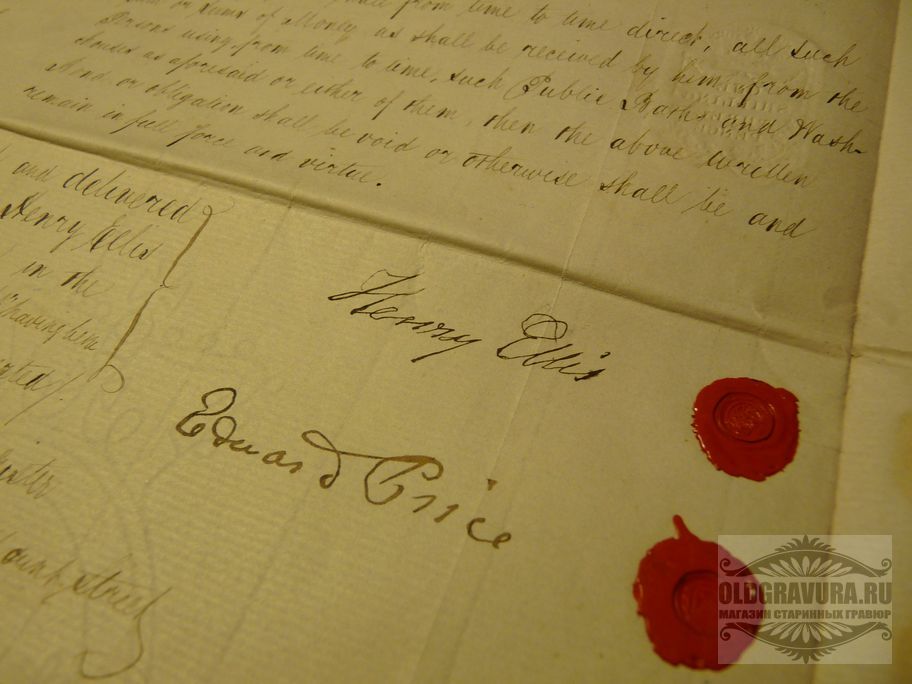 shall from time to time direct, all such
or sums of Money as shall be received by him from the
Persons using, from time to time, such Public Baths and Wash-
houses as aforesaid or either of them, then the above written
Bond or obligation shall be void or otherwise shall be and
remain in full force and virtue.
and delivered
Henry Ellis
in the
having been
Henry Ellis
Edward Price
street
OLDGRAVURA.RU
МАГАЗИН СТАРИННЫХ ГРАВЮР